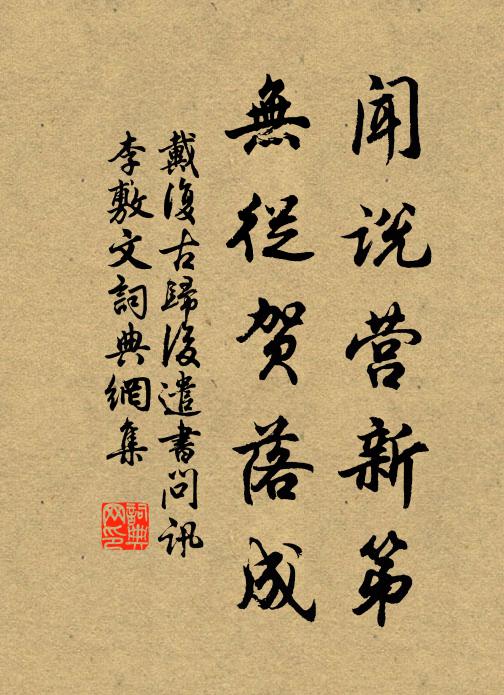 闻说营新第
無從贺落成
戴復古歸後遣書問訊
李敷文詞典網集
詞典网印